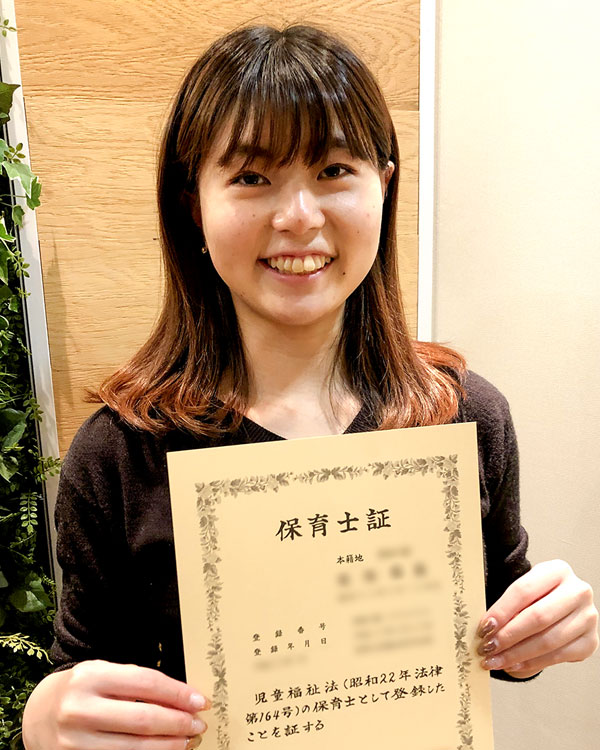 保育士証
本籍地
登録番号
登録年月日
児童福祉法(昭和22年法律
第164号)の保育士として登録した
ことを証する